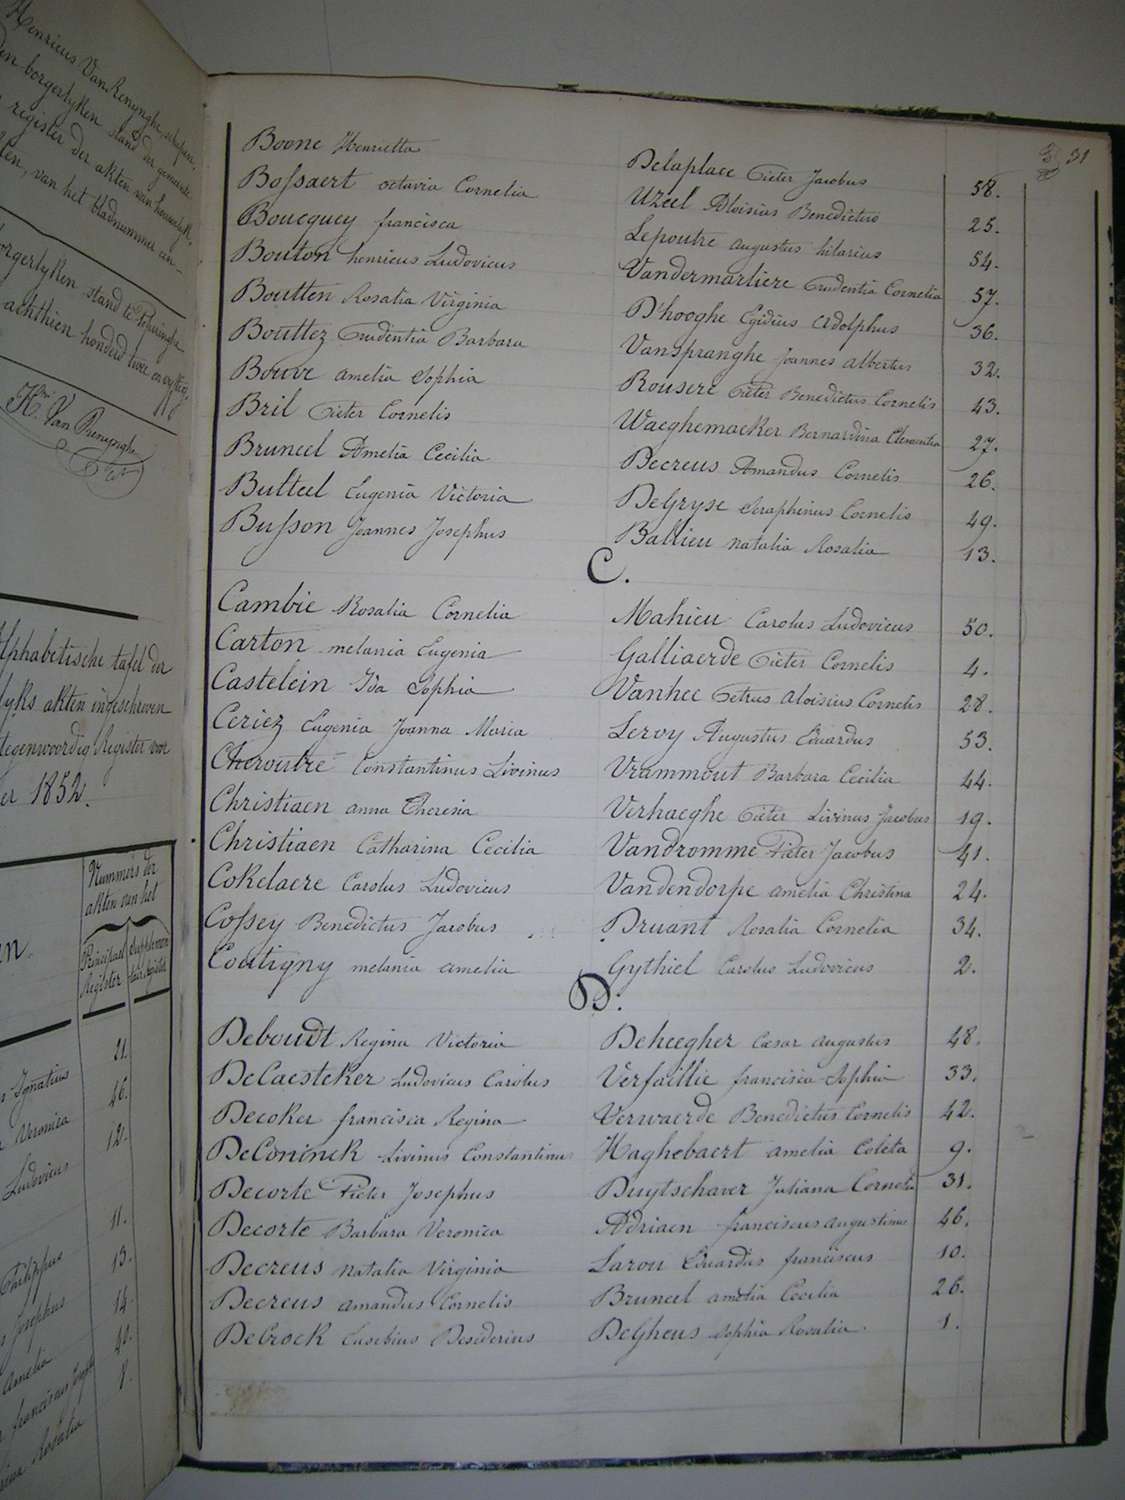 Henricus Van Renynghe, schepen
den borgerlyken stand der gemeente
register der akten van houwelyk,
van het bladnummer een
borgerlyken stand te Poperinghe
achthien honderd twee en vyftig
Hri Van Renynghe
Alphabetische tafel der
lyks akten ingeschreven
tegenwoordig Register voor
er 1852.
Nummers der
akten van het
Principael Register
Supplementair Register
21.
Ignatius 16.
Veronica 12.
Ludovicus
11.
Philippus 13.
Josephus 14.
Amelia
franciscus
Rosalia
31
Boone Henrietta Delaplace Pieter Jacobus 58.
Bossaert octavia Cornelia Uzeel Aloisius Benedictus 25.
Boucquey francisca Lepoutre augustus hilarius 54.
Bouton henricus Ludovicus Vandermarliere Prudentia Cornelia 57.
Boutten Rosalia Virginia D'hooghe Egidius Adolphus 36.
Bouttez Prudentia Barbara Vanspranghe Joannes albertus 32.
Bouve amelia Sophia Rousere Pieter Benedictus Cornelis 43.
Bril Pieter Cornelis Waeghemacker Bernardina Clementia 27.
Bruneel Amelia Cecilia Decreus Amandus Cornelis 26.
Bulteel Eugenia Victoria DeGryse Seraphinus Cornelis 49.
Busson Joannes Josephus Ballieu natalia Rosalia 13.
C.
Cambie Rosalia Cornelia Mahieu Carolus Ludovicus 50.
Carton melania Eugenia Galliaerde Pieter Cornelis 4.
Castelein Ida Sophia Vanhee Petrus aloisius Cornelis 28.
Ceriez Eugenia Joanna Maria Leroy Augustus Eduardus 53.
Cheroutre Constantinus Livinus Vrammout Barbara Cecilia 44.
Christiaen anna Theresia Verhaeghe Pieter Livinus Jacobus 19.
Christiaen Catharina Cecilia Vandromme Pieter Jacobus 41.
Cokelaere Carolus Ludovicus Vandendorpe amelia Christina 24.
Cossey Benedictus Jacobus Druant Rosalia Cornelia 34.
Coutigny melania amelia Gythiel Carolus Ludovicus 2.
D.
Deboudt Regina Victoria Deheegher Cæsar augustus 48.
DeCaesteker Ludovicus Carolus Verfaillie francisca Sophia 33.
Decoker francisca Regina Verwaerde Benedictus Cornelis 42.
DeConinck Livinus Constantinus Haghebaert amelia Coleta 9.
Decorte Pieter Josephus Duytschaver Juliana Cornelia 31.
Decorte Barbara Veronica Adriaen franciscus augustinus 46.
Decreus natalia Virginia Larou Eduardus franciscus 10.
Decreus amandus Cornelis Bruneel amelia Cecilia 26.
DeCrock Eusebius Desiderius DeGheus Sophia Rosalia 1.